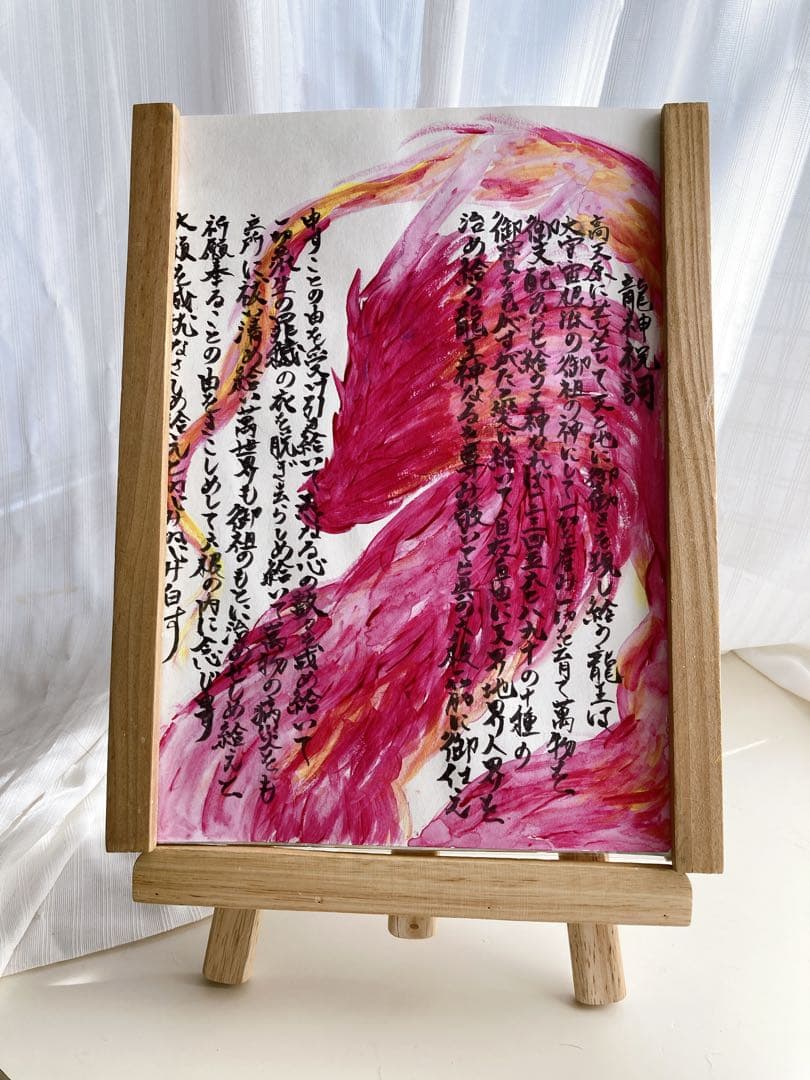 龍神祝詞
高天原に坐し坐して天と地に御働きを現し給う龍王は
大宇宙根源の御祖の神にして一切を産み一切を育て萬物を
御支配あらせ給う王神なれば一二三四五六七八九十の十種の
御寶を己がすがたと變じ給いて自在自由に天界地界人界を
治め給う龍王神なるを尊み敬いて眞の六根一筋に御仕え
申すことの由を受引き給いて愚なる心の数々を戒め給いて
一切衆生の罪穢の衣を脱ぎ去らしめ給いて萬物の病災をも
立所に祓い清め給い萬世界も御祖のもとに治めせしめ給えと
祈願奉ることの由をきこしめして六根の内に念じ申す
大願を成就なさしめ給えと 白す